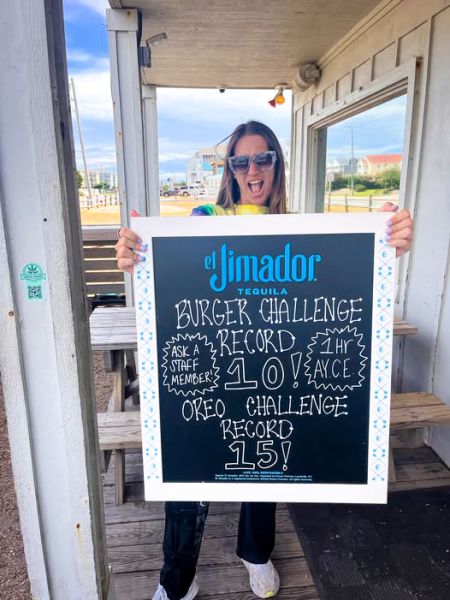 el Jimador.
TEQUILA
BURGER CHALLENGE
RECORD
10!
ASK A
STAFF
MEMBER!
1 Hr
A.Y.C.E.
OREO CHALLENGE
RECORD
15!
LIVE UNO, RESPONSIBLY.